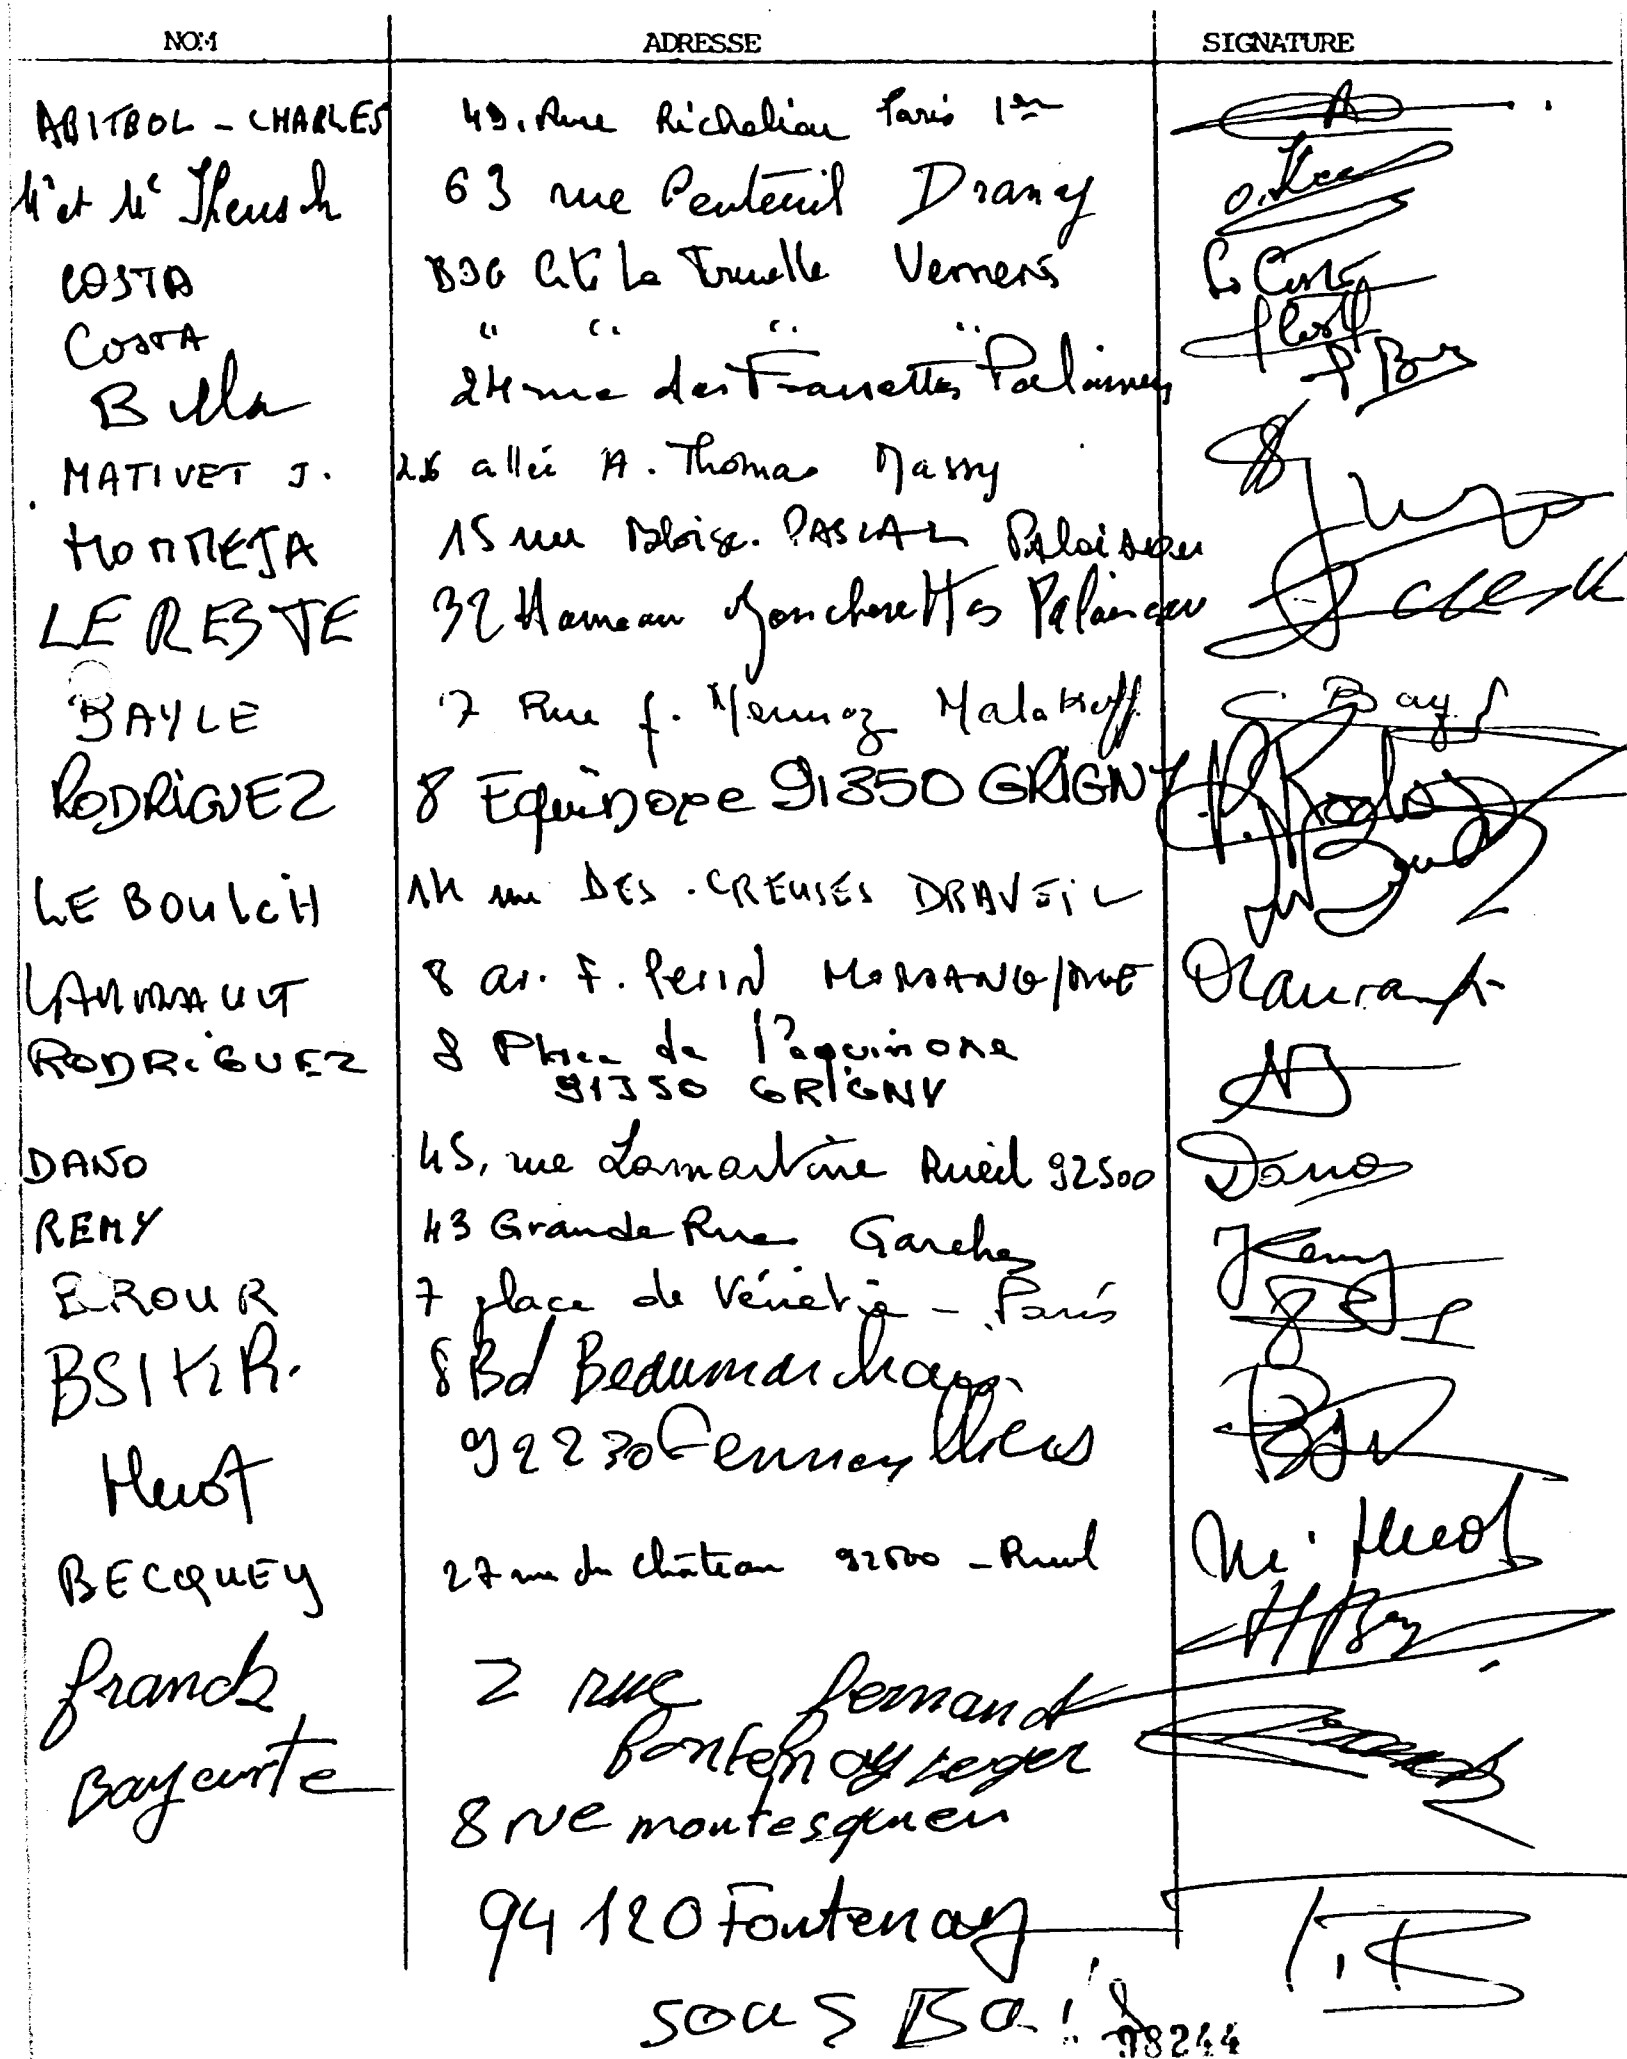 NOM ADRESSE SIGNATURE
ABITBOL - CHARLES 49, Rue Richelieu Paris 1er
Mr et Me 63 rue Drancy
COSTA B36 Cité La Verrieres Costa
COSTA " " " "
Billa 24 rue des Palaiseau
MATIVET J. 26 allée A. Thomas Massy
MOMMEJA 15 rue Blaise PASCAL Palaiseau
LE RESTE 32 Hameau Palaiseau
BAYLE 7 Rue J. Mermoz Malakoff
RODRIGUEZ 8 Equinoxe 91350 GRIGNY
LE BOULCH 14 rue DES CREUSES DRAVEIL
8 av. F. Perin MORSANG/ORGE
RODRIGUEZ 8 Place de l'equinoxe
91350 GRIGNY
DANO 45, rue Lamartine Rueil 92500 Dano
REMY 43 Grande Rue Garches Remy
BROUR 7 place de Vénétie - Paris
BSIKR. 8 Bd Beaumarchais
92230 Gennevilliers
Huot Huot
BECQUEY 27 rue du Château 92500 - Rueil
Franck 2 rue Fernand
Fontenay Leger
Baycurte
8 rue montesquieu
94120 Fontenay
sous Bois
98244